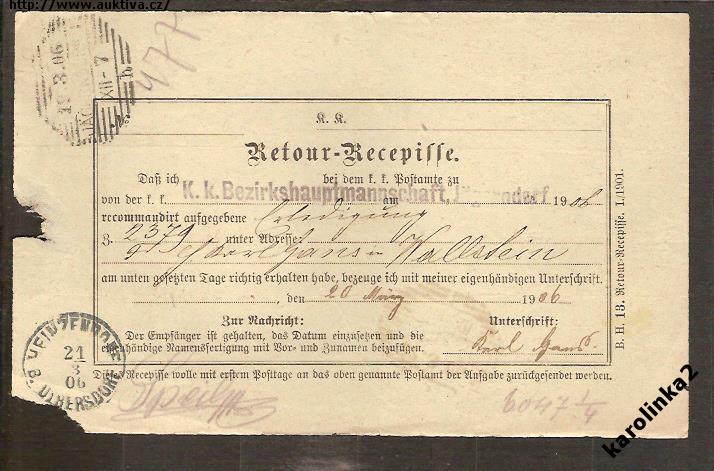 http://www.auktiva.cz/
477
11 3.06
XII-7
K. K.
Retour-Recepisse.
Daß ich bei dem k. k. Postamte zu
K. k. Bezirkshauptmannschaft, Jägerndorf
von der k. k. am 1906
recommandirt aufgegebene Erledigung
Z. 2379 unter Adresse:
Karl Hans in Wallstein
am unten gesetzten Tage richtig erhalten habe, bezeuge ich mit meiner eigenhändigen Unterschrift.
den 20 März 1906
Zur Nachricht: Unterschrift:
Der Empfänger ist gehalten, das Datum einzusetzen und die
eigenhändige Namensfertigung mit Vor- und Zunamen beizufügen.
Karl Hans
Dieses Recepisse wolle mit erstem Posttage an das oben genannte Postamt der Aufgabe zurückgesendet werden.
B. H. 13. Retour-Recepisse. I./1901.
HEINZENDORF
21
3
06
B. OLBERSDORF
6047 1/4
karolinka2